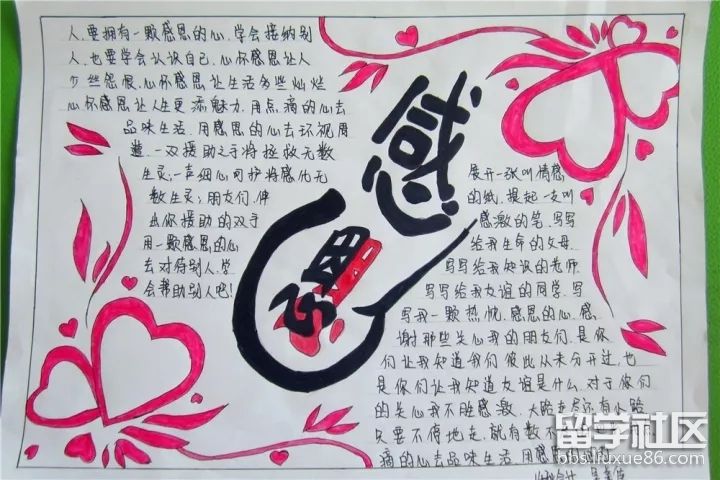 人，要拥有一颗感恩的心，学会接纳别
人，也要学会认识自己，心怀感恩让人
少些怨恨，心怀感恩让生活多些灿烂
心怀感恩让人生更添魅力，用点滴的心去
品味生活，用感恩的心去环视周
遭，一双援助之手将拯救无数
生灵；一声细心呵护将感化无
数生灵；朋友们，伸
出你援助的双手
用一颗感恩的心
去对待别人，学
会帮助别人吧！
感
恩
展开一张叫情感
的纸，提起一支叫
感激的笔，写写
给我生命的父母
写写给我知识的老师
写写给我友谊的同学，写
写我一颗热忱，感恩的心，感
谢那些关心我的朋友们，是你
们让我知道我们彼此从未分开过，也
是你们让我知道友谊是什么，对于你们
的关心我不胜感激，大路走尽还有小路
只要不停地走，就有数不
滴的心去品味生活，用感恩的
留学社区
bbs.liuxue86.com